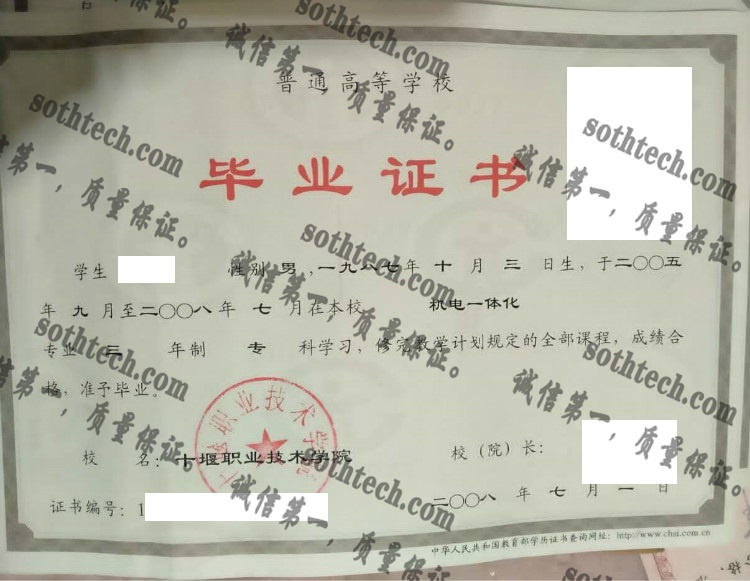 普通高等学校
毕业证书
学生 性别 男 ,一九八七年 十 月 三 日生，于二〇〇五
年 九 月至二〇〇八年 七 月在本校 机电一体化
专业 三 年制 专 科学习，修完教学计划规定的全部课程，成绩合
格，准予毕业。
校 名：十堰职业技术学院
校（院）长：
二〇〇八 年 七 月 一 日
证书编号：1
中华人民共和国教育部学历证书查询网址：http://www.chsi.com.cn
十堰职业技术学院
sothtech.com
诚信第一，质量保证。
sothtech.com
诚信第一，质量保证。
sothtech.com
诚信第一，质量保证。
sothtech.com
诚信第一，质量保证。
sothtech.com
诚信第一，质量保证。
sothtech.com
诚信第一，质量保证。
sothtech.com
诚信第一，质量保证。